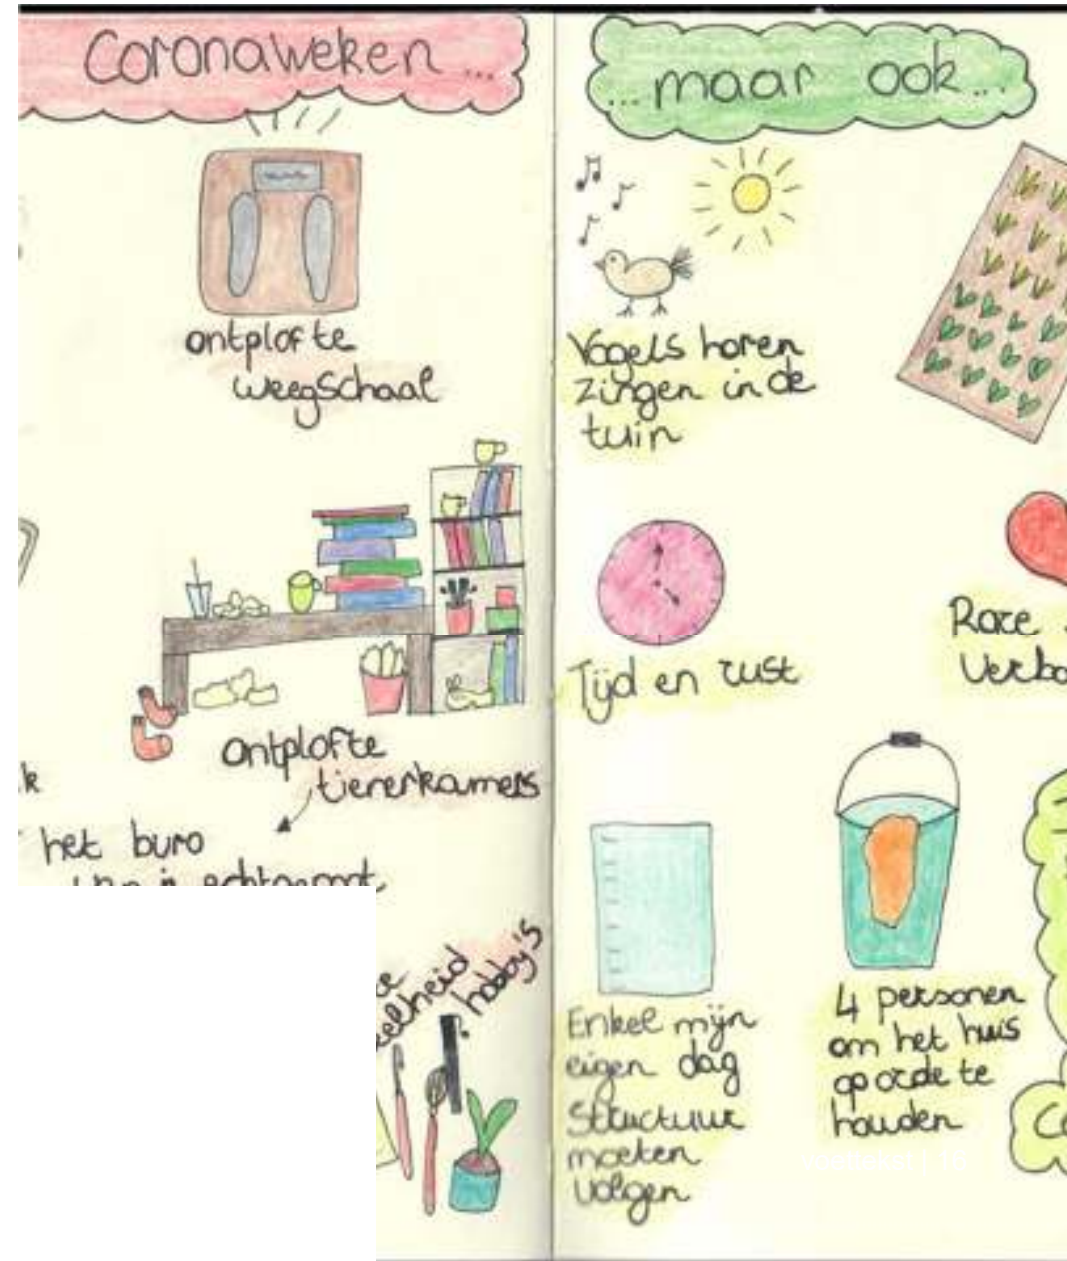 Coronaweken ...
ontplofte
weegschaal
ontplofte
tienerkamers
k
het buro
hobby's
... maar ook ...
Vogels horen
zingen in de
tuin
Tijd en rust
Enkel mijn
eigen dag
structuur
moeten
volgen
4 personen
om het huis
op orde te
houden